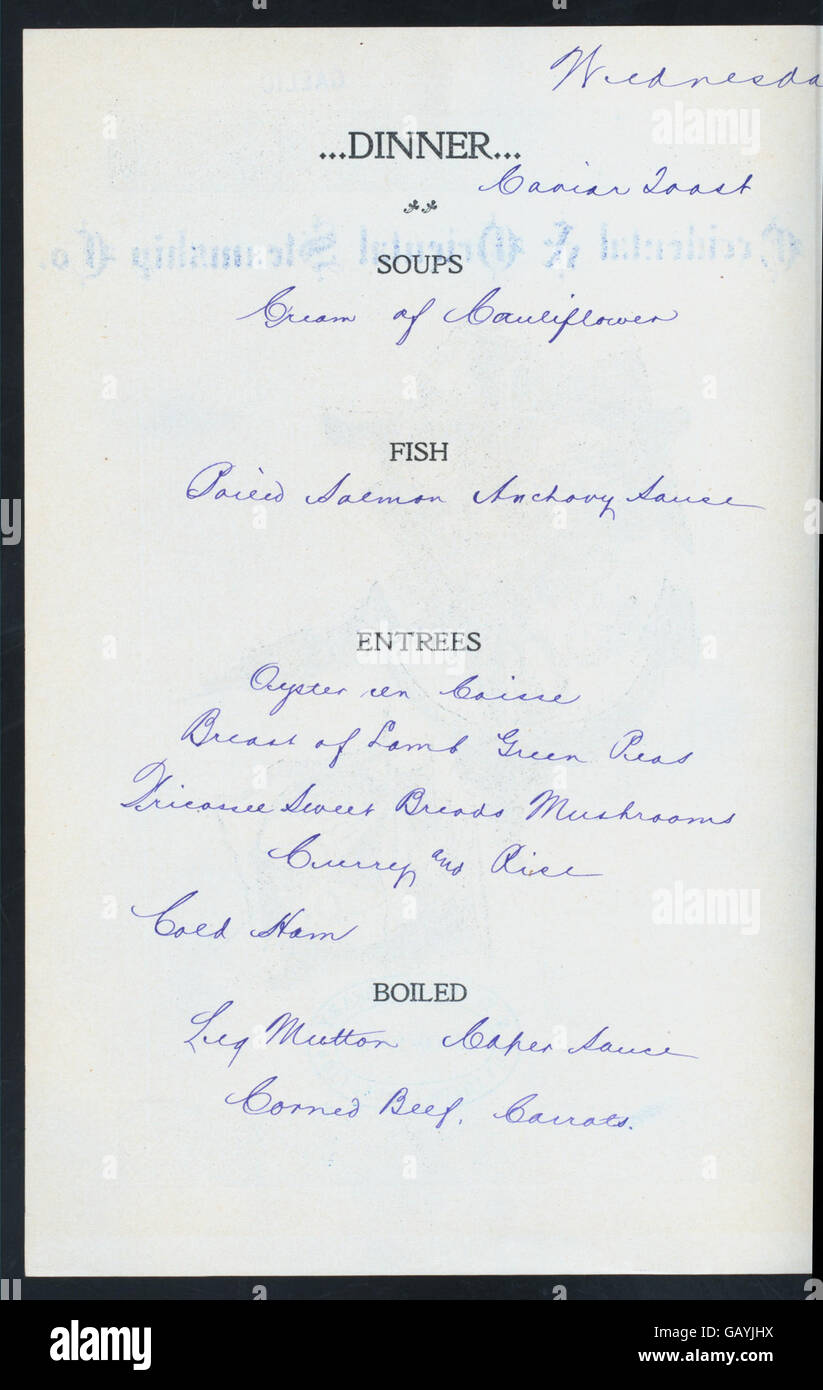 GAELIC
Wednesda
...DINNER...
Caviar Toast
Occidental & Oriental Steamship Co.
SOUPS
Cream of Cauliflower
FISH
Salmon Anchovy Sauce
ENTREES
Oyster en Caisse
Breast of Lamb Green Peas
Fricassee Sweet Breads Mushrooms
Curry and Rice
Cold Ham
BOILED
Leg Mutton Caper Sauce
Corned Beef. Carrots.
alamy
alamy
alamy
alamy
a alamy
Image ID: GAYJHX
www.alamy.com